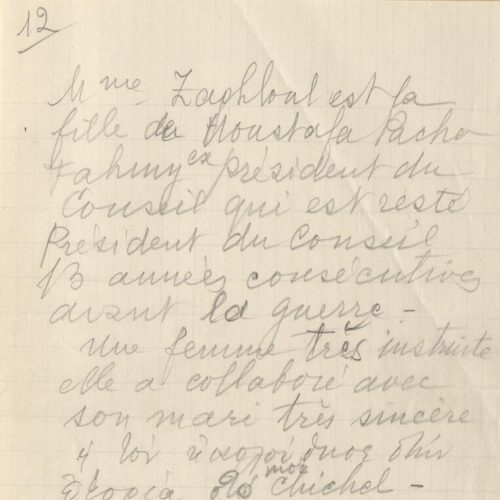 12
Mme Zaghloul est la
fille de Moustafa Pacha
Fahmy ex président du
Conseil qui est resté
Président du Conseil
13 années consécutives
avant la guerre -
Une femme très instruite
elle a collaboré avec
son mari très sincère
moy
chichel -